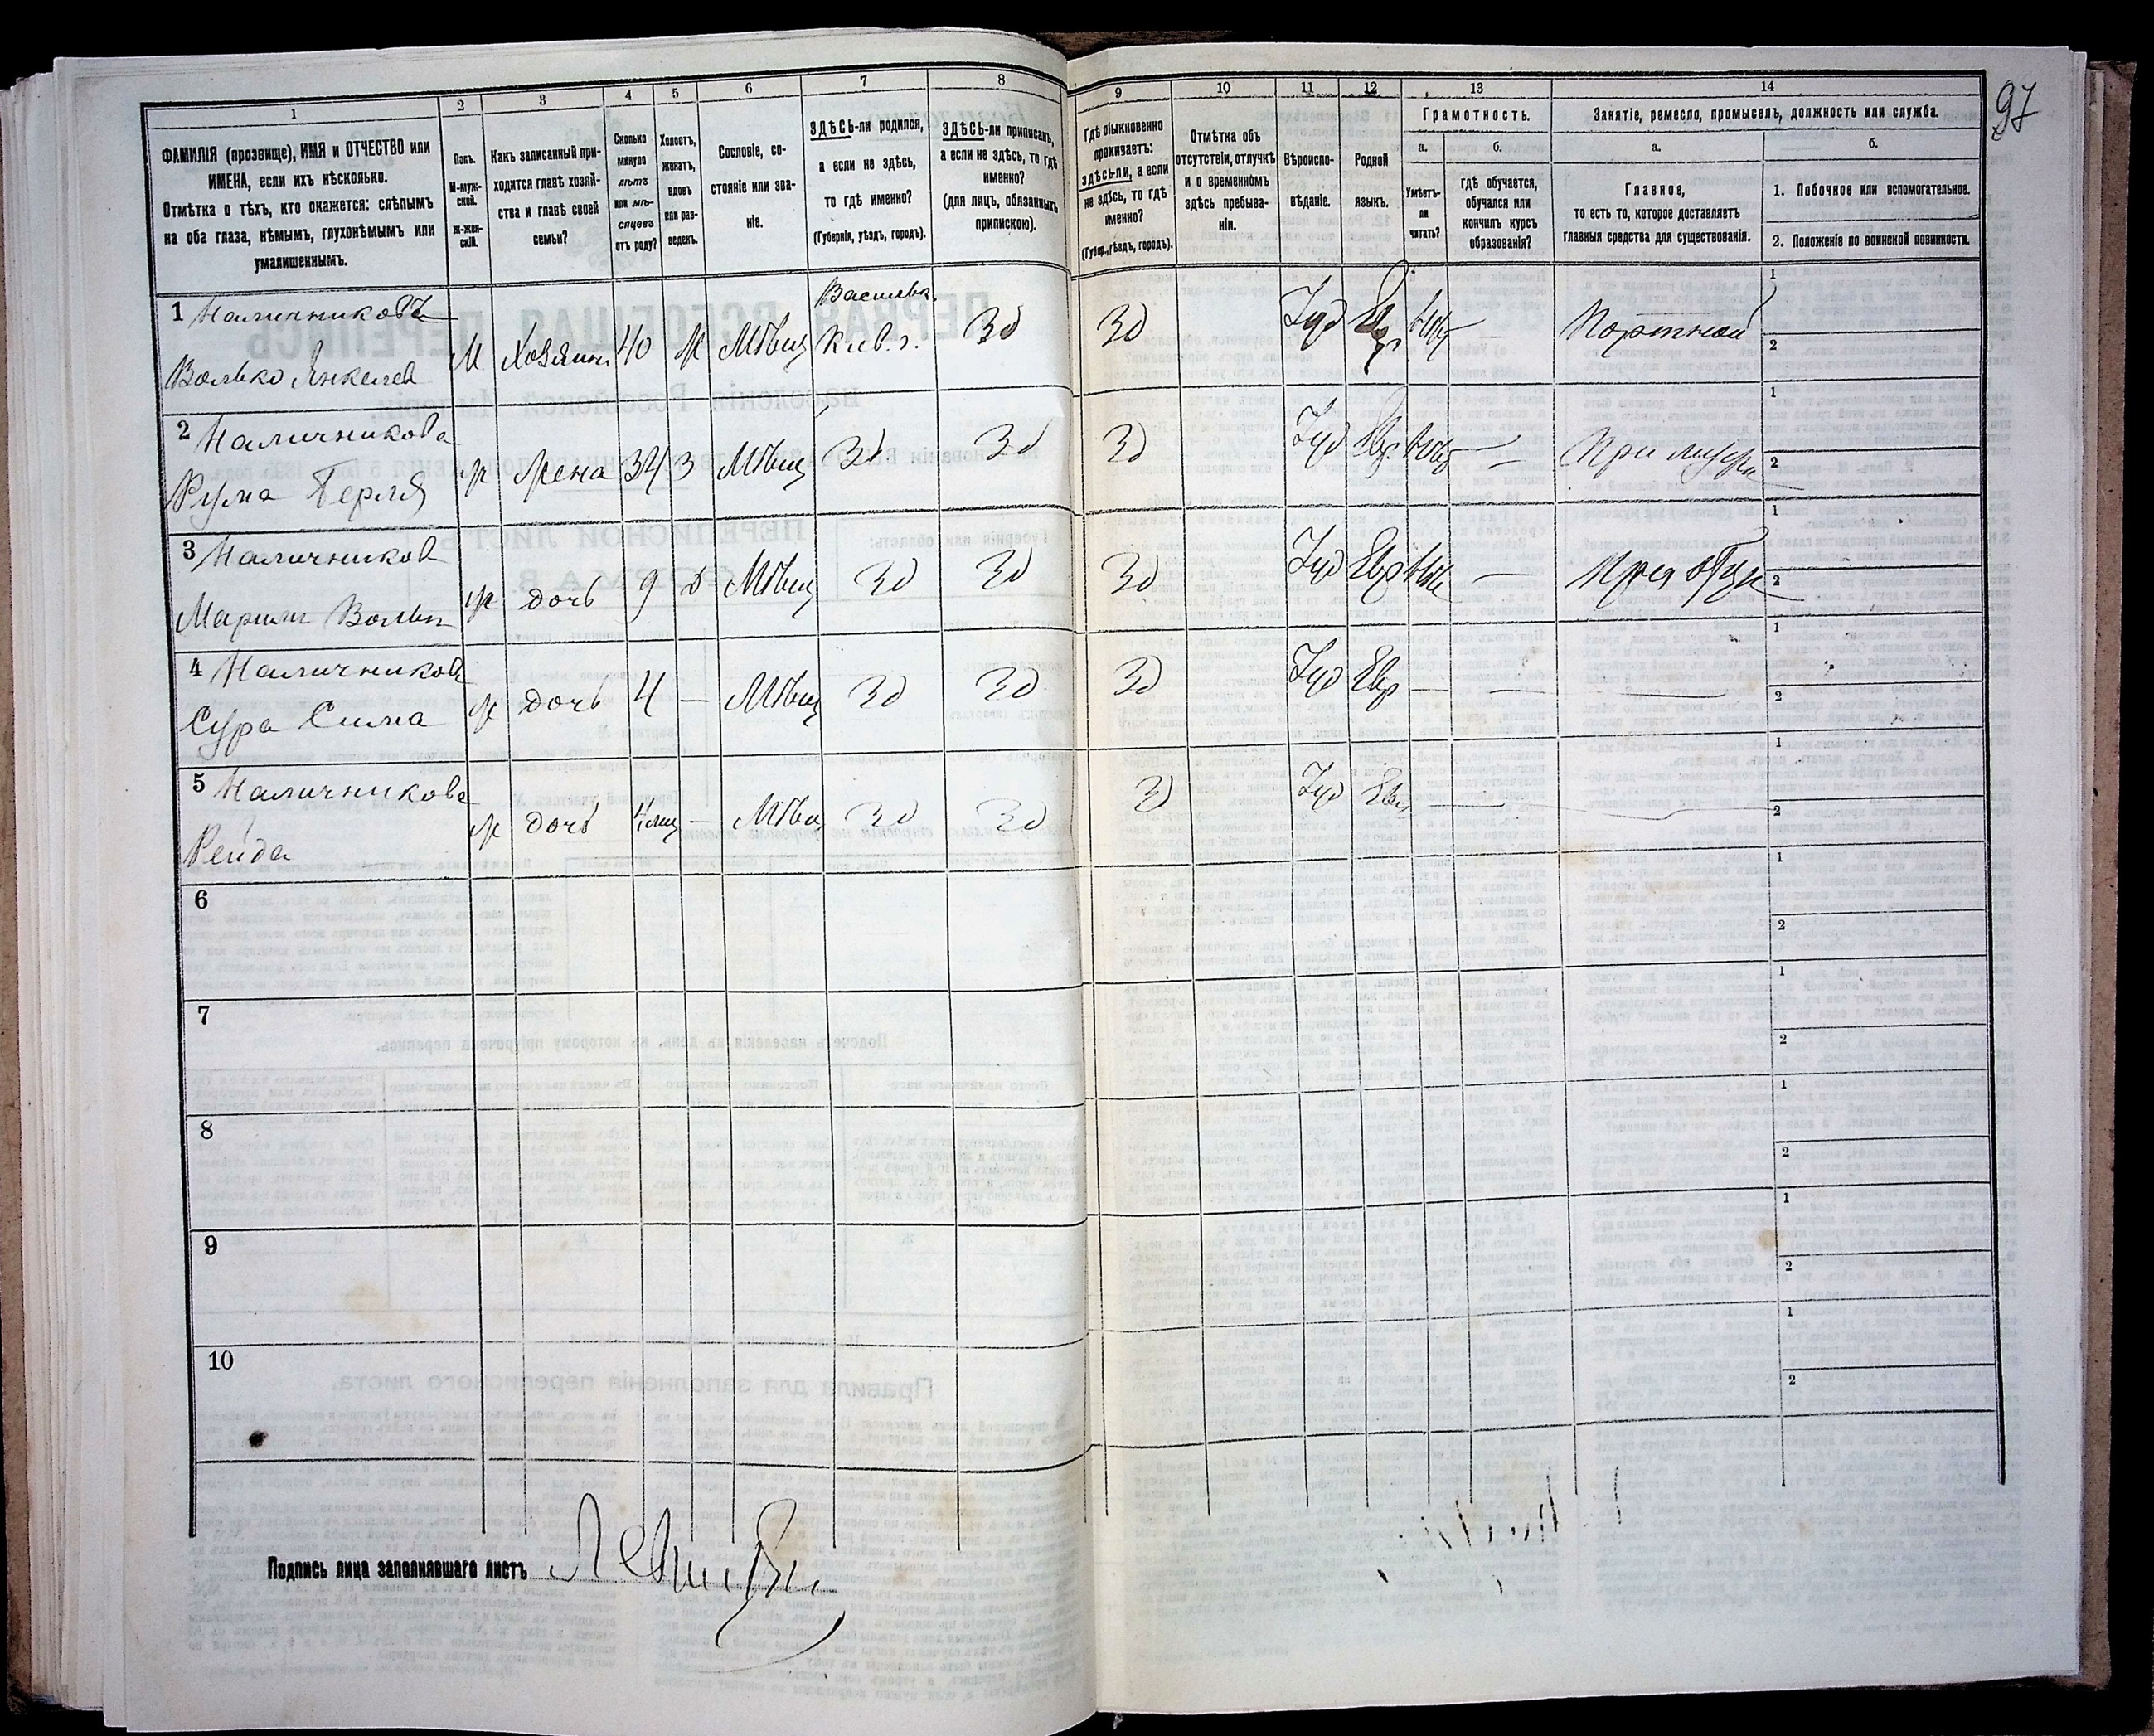 97
1 2 3 4 5 6 7 8 9 10 11 12 13 14
ФАМИЛІЯ (прозвище), ИМЯ и ОТЧЕСТВО или
ИМЕНА, если ихъ нѣсколько.
Отмѣтка о тѣхъ, кто окажется: слѣпымъ
на оба глаза, нѣмымъ, глухонѣмымъ или
умалишеннымъ.
Полъ.
М-муж-
ской.
Ж-жен-
скій.
Какъ записанный при-
ходится главѣ хозяй-
ства и главѣ своей
семьи?
Сколько
минуло
лѣтъ
или мѣ-
сяцевъ
отъ роду?
Холостъ,
женатъ,
вдовъ
или раз-
веденъ.
Сословіе, со-
стояніе или зва-
ніе.
ЗДѢСЬ-ли родился,
а если не здѣсь,
то гдѣ именно?
(Губернія, уѣздъ, городъ).
ЗДѢСЬ-ли приписанъ,
а если не здѣсь, то гдѣ
именно?
(для лицъ, обязанныхъ
припискою).
Гдѣ обыкновенно
проживаетъ:
здѣсь-ли, а если
не здѣсь, то гдѣ
именно?
(Губер., уѣздъ, городъ).
Отмѣтка объ
отсутствіи, отлучкѣ
и о временномъ
здѣсь пребыва-
ніи.
Вѣроиспо-
вѣданіе.
Родной
языкъ.
Грамотность.
а.
Умѣетъ-
ли
читать?
б.
гдѣ обучается,
обучался или
кончилъ курсъ
образованія?
Занятіе, ремесло, промыселъ, должность или служба.
а.
Главное,
то есть то, которое доставляетъ
главныя средства для существованія.
б.
1. Побочное или вспомогательное.
2. Положеніе по воинской повинности.
1 Наличниковъ
Волько Янкелев
М Хозяин 40 Ж Мѣщ
Васильк.
Кіев. г.
Зд Зд Іуд Евр — Портной
1
2
2 Наличникова
Рухма Перля
Ж Жена 34 З Мѣщ Зд Зд Зд Іуд Евр — При
1
2
3 Наличников
Марьям Вольк
Ж дочь 9 Д Мѣщ Зд Зд Зд Іуд Евр — При
1
2
4 Наличников
Сура Сима
Ж дочь 4 — Мѣщ Зд Зд Зд Іуд Евр — — —
1
2
5 Наличникова
Рейда
Ж дочь — Мѣщ Зд Зд Зд Іуд Евр — — —
1
2
6
1
2
7
1
2
8
1
2
9
1
2
10
1
2
Подпись лица заполнявшаго листъ